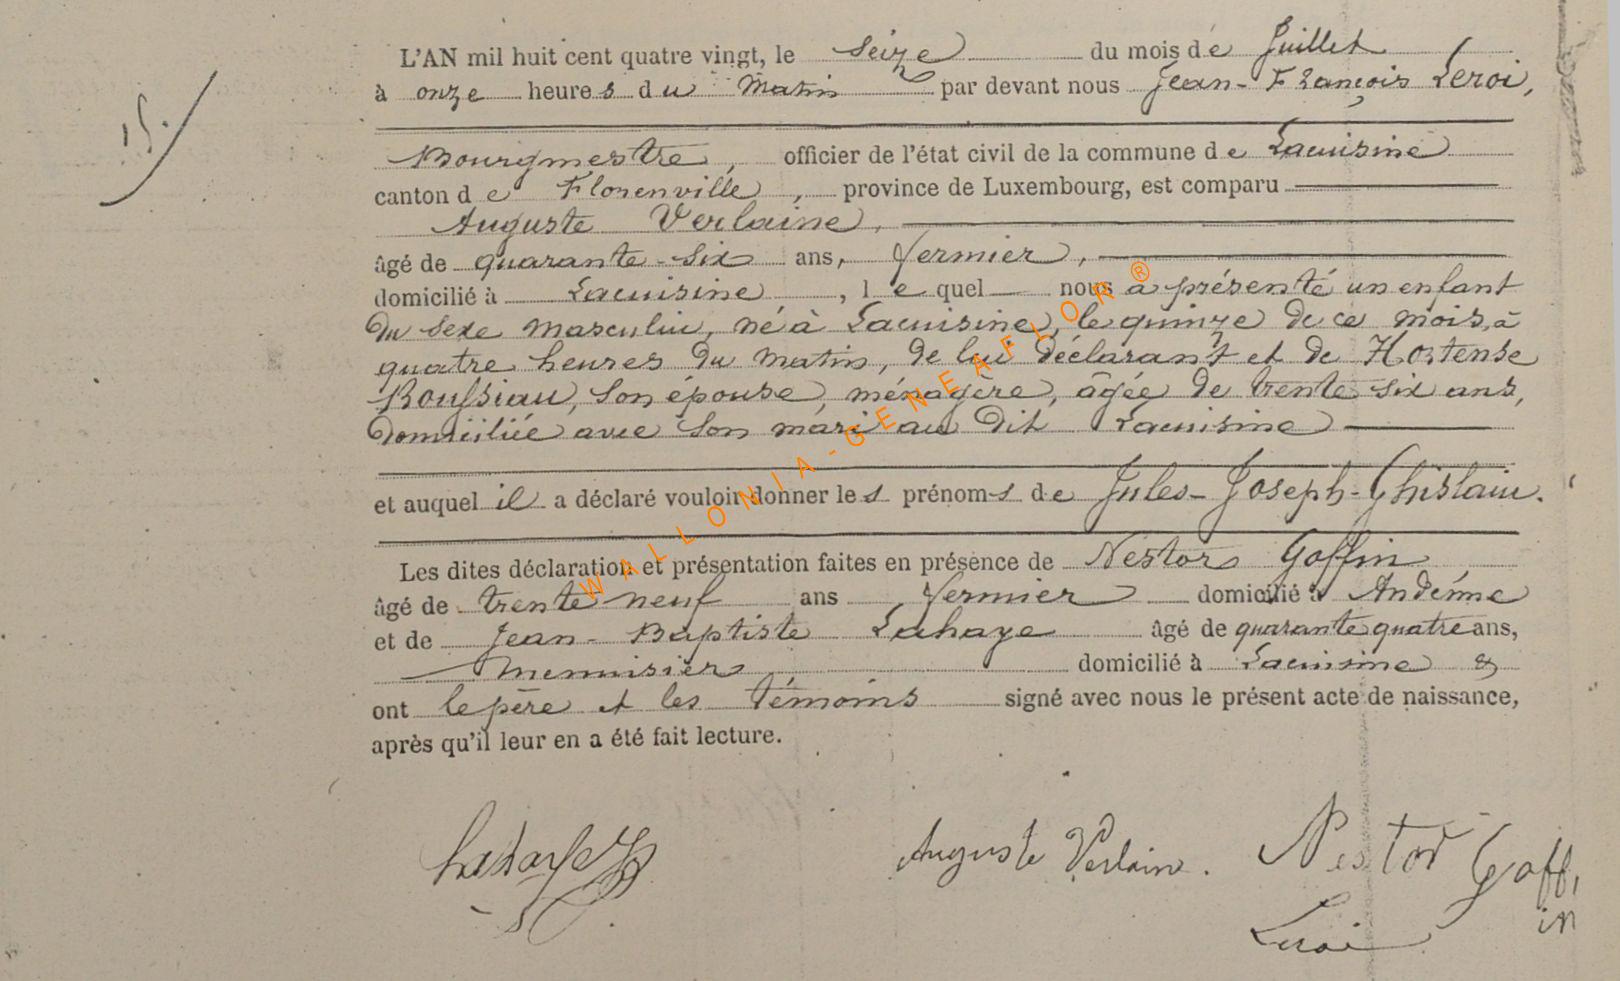 L'AN mil huit cent quatre vingt, le Seize du mois de Juillet
à onze heures du Matin par devant nous Jean-François Leroi,
15.
Bourgmestre, officier de l'état civil de la commune de Lacuisine
canton de Florenville, province de Luxembourg, est comparu
Auguste Verlaine,
âgé de quarante-six ans, fermier,
domicilié à Lacuisine, lequel nous a présenté un enfant
du sexe masculin, né à Lacuisine, le quinze de ce mois, à
quatre heures du matin, de lui déclarant et de Hortense
Roussiau, son épouse, ménagère, âgée de trente-six ans,
domiciliée avec son mari au dit Lacuisine
et auquel il a déclaré vouloir donner les prénoms de Jules-Joseph-Ghislain.
Les dites déclaration et présentation faites en présence de Nestor Goffin
âgé de trente neuf ans fermier domicilié à Andenne
et de Jean-Baptiste Lahaye âgé de quarante quatre ans,
Menuisier domicilié à Lacuisine &
ont le père et les témoins signé avec nous le présent acte de naissance,
après qu'il leur en a été fait lecture.
Lahaye JB
Auguste Verlaine.
Nestor Goff,
in
Leroi
WALLONIA-GENEAFLOR®